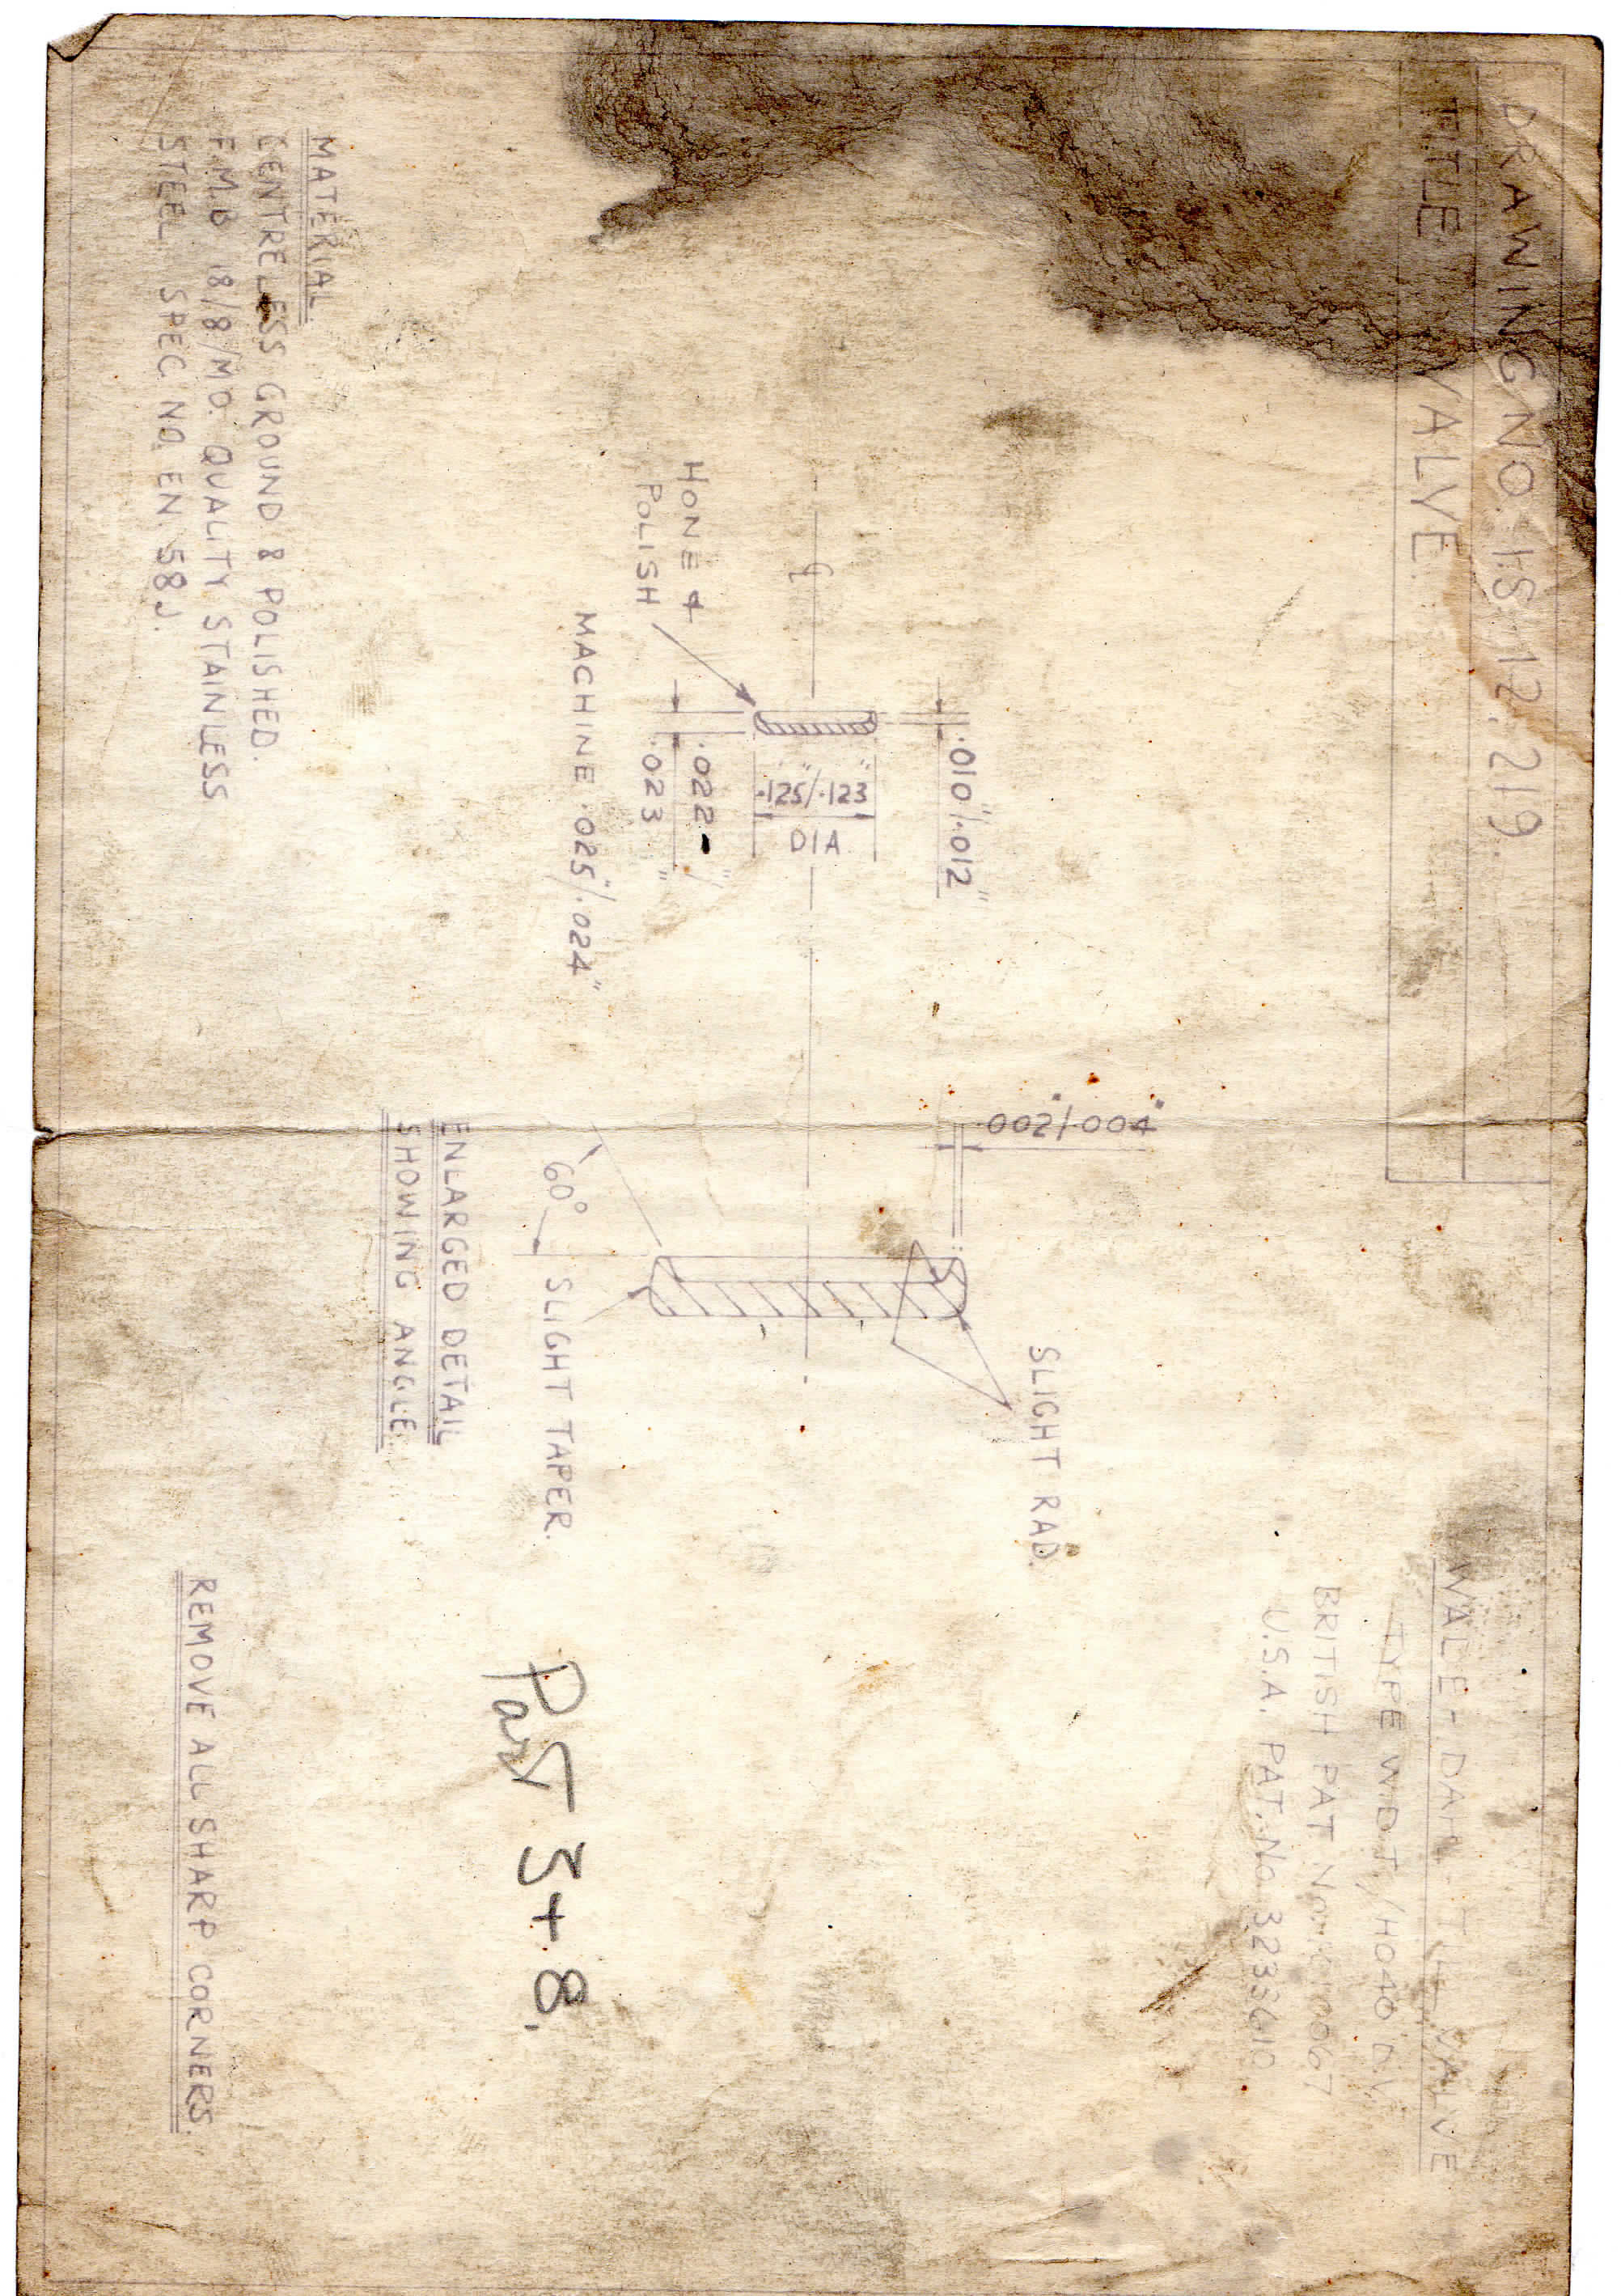 DRAWING NO. 1.S.12.219.
TITLE VALVE.
WALE-DAHL TILL VALVE
TYPE W.D.T./H040 D.V.
BRITISH PAT No.
U.S.A. PAT. No 3233610
HONE &
POLISH
℄
.010"/.012"
.125"/.123"
DIA
.022 - "/
.023 "
MACHINE .025"/.024"
.002"/.004"
SLIGHT RAD.
60°
SLIGHT TAPER.
ENLARGED DETAIL
SHOWING ANGLE.
MATERIAL.
CENTRELESS GROUND & POLISHED.
F.M.B 18/8/MO. QUALITY STAINLESS
STEEL SPEC NO. EN 58J.
Part 5+8.
REMOVE ALL SHARP CORNERS.